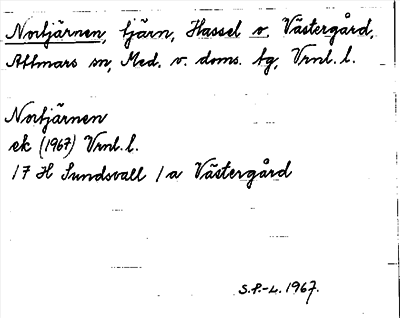 Nortjärnen, tjärn, Hassel o. Västergård,
Attmars sn, Med. v. doms. tg, Vrnl. l.
Nortjärnen
ek (1967) Vrnl. l.
17 H Sundsvall 1a Västergård
S.P.-L. 1967.